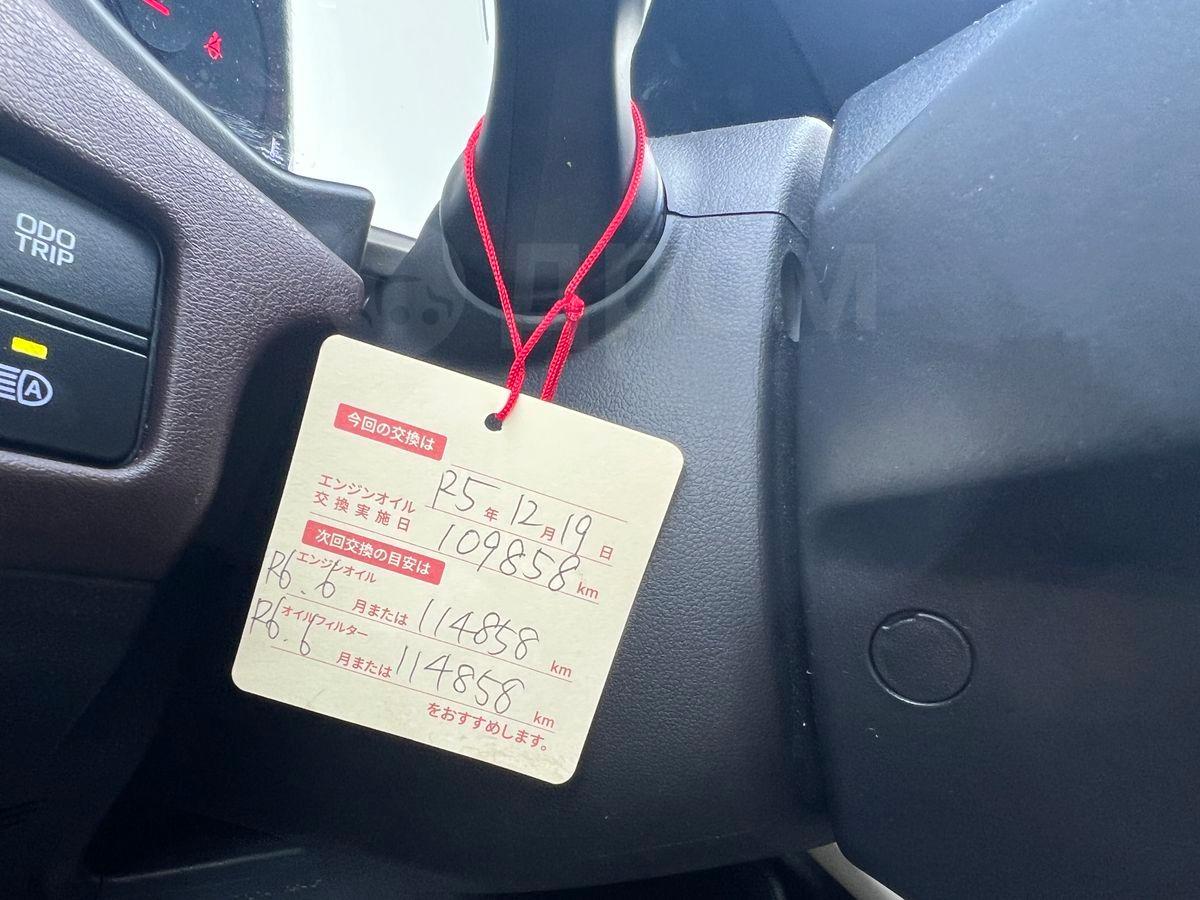 ODO
TRIP
A
ДРОМ
今回の交換は
エンジンオイル
交換実施日
R5年12月19日
109858km
次回交換の目安は
エンジンオイル
R6.6月または114858km
オイルフィルター
R6.6月または114858km
をおすすめします。